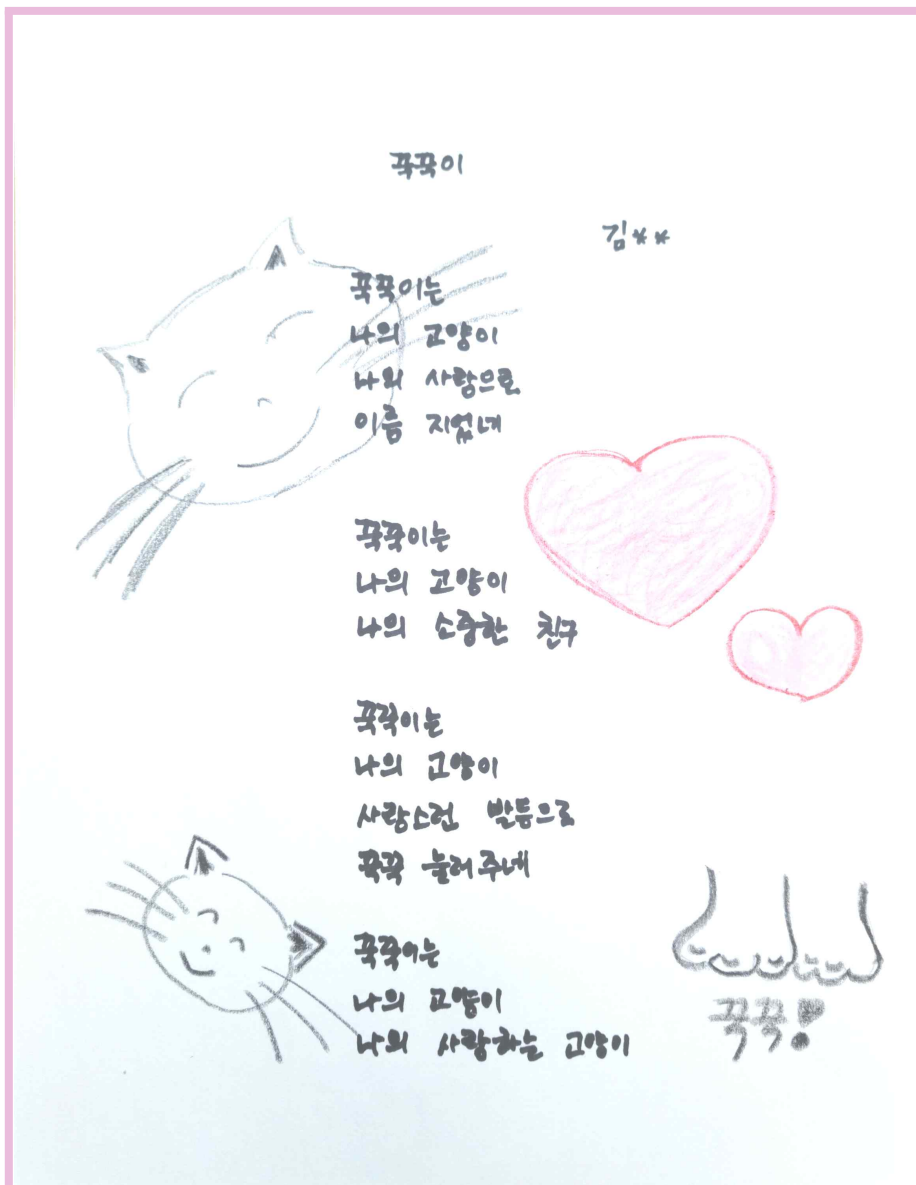 꾹꾹이
김**
꾹꾹이는
나의 고양이
나의 사랑으로
이름 지었네
꾹꾹이는
나의 고양이
나의 소중한 친구
꾹꾹이는
나의 고양이
사랑스런 발등으로
꾹꾹 눌러주네
꾹꾹이는
나의 고양이
나의 사랑하는 고양이
꾹꾹!